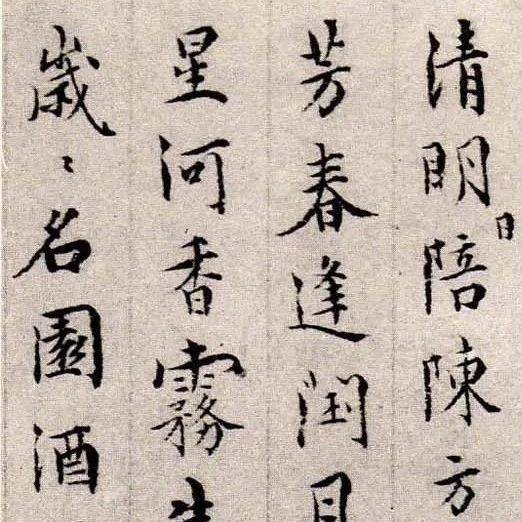 清明日陪陳方
芳春逢閏月
星河香霧生
歲〻名園酒